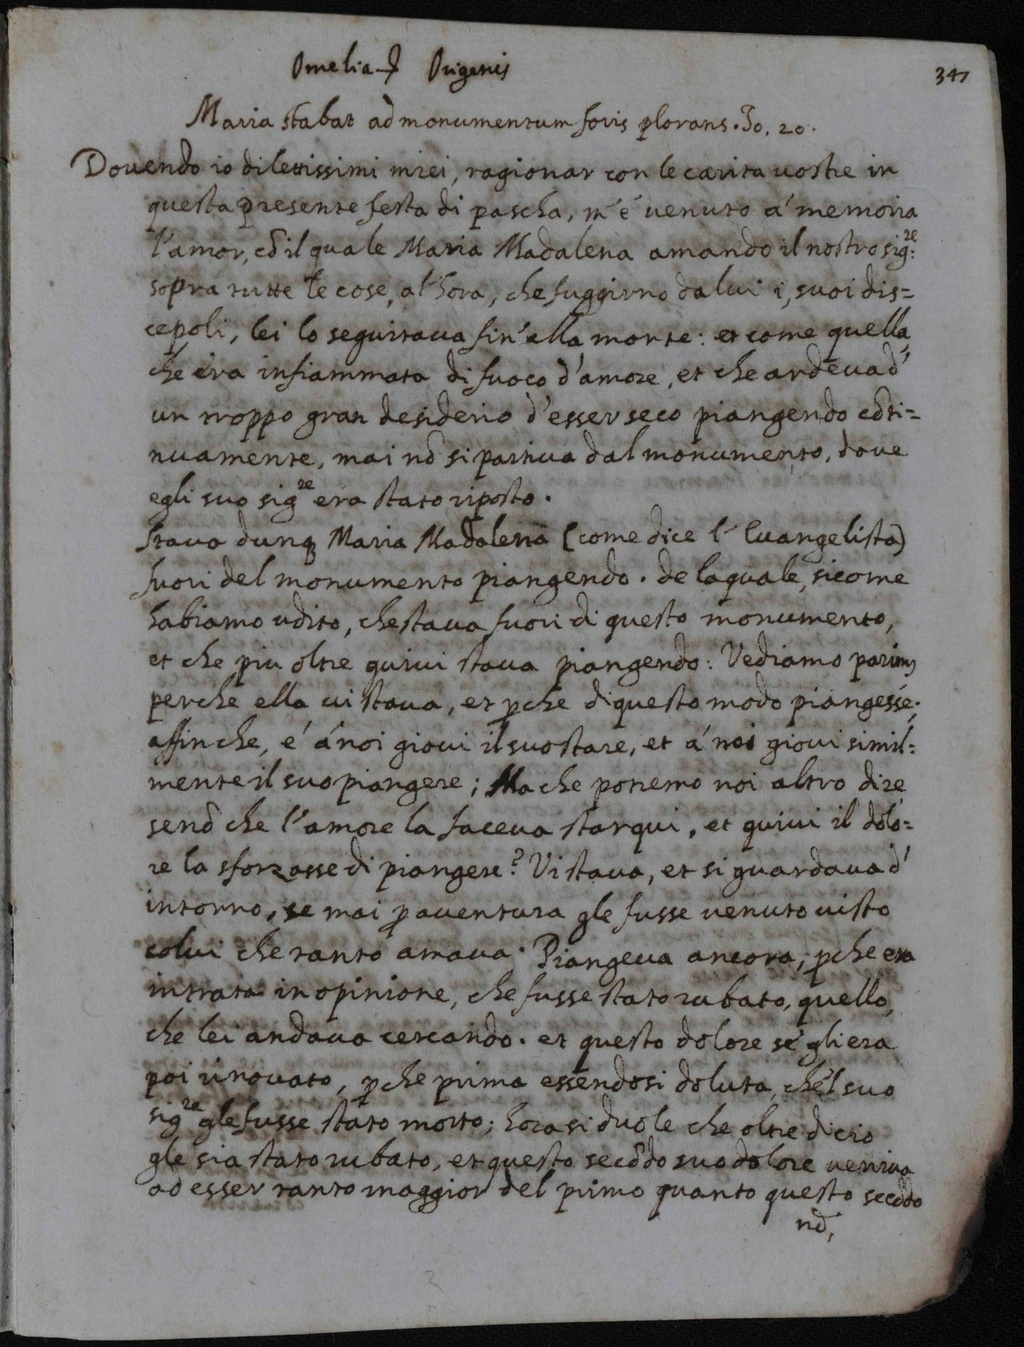 Omelia Origenis
347
Maria stabat ad monumentum foris plorans. Io. 20.
Dovendo io dilettissimi miei, ragionar con le carita uostre in
questa presente festa di pascha, m'é uenuto á memoria
l'amor, cõ il quale Maria Madalena amando il nostro sig.re
sopra tutte le cose, al'hora, che fuggirno da lui i suoi dis=
cepoli, lei lo seguitaua fin'alla morte: et come quella
che era infiammata di fuoco d'amore, et che ardeua d'
un troppo gran desiderio d'esser seco piangendo cõti=
nuamente, mai nõ si partiua dal monumento, doue
egli suo sig.re era stato riposto.
Staua dunq Maria Madalena (come dice l'Euangelista)
fuori del monumento piangendo. de laquale, sicome
habiamo udito, che staua fuori di questo monumento,
et che piu oltre quiui staua piangendo: Vediamo parim
perche ella ui staua, et pche di questo modo piangesse;
affinche, e á noi gioui il suo stare, et á noi gioui simil=
mente il suo piangere; Ma che potremo noi altro dire
senõ che l'amore la faceua star qui, et quiui il dolo=
re la sforzasse di piangere? Vi staua, et si guardaua d'
intorno, se mai p auentura gle fusse uenuto uisto
colui che tanto amaua. Piangeua ancora, pche era
intrata in opinione, che fusse stato rubato, quello,
che lei andaua cercando. et questo dolore se gli era
poi rinouato, pche prima essendosi doluta, che'l suo
sig.re gle fusse stato morto; hora si duole che oltre di cio
gle sia stato rubato, et questo secõdo suo dolore ueniua
ad esser tanto maggior del primo quanto questo secõdo
nõ,